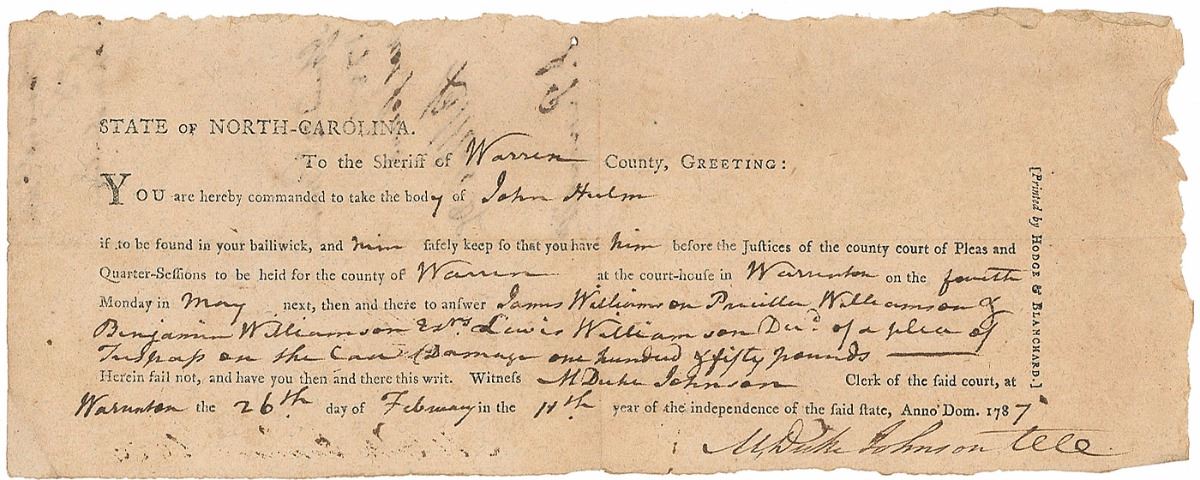 STATE OF NORTH-CAROLINA.
To the Sheriff of Warren County, GREETING:
YOU are hereby commanded to take the body of John Hulm
if to be found in your bailiwick, and him safely keep so that you have him before the Justices of the county court of Pleas and
Quarter-Sessions to be held for the county of Warren at the court-house in Warrenton on the fourth
Monday in May next, then and there to answer James Williamson Pricilla Williamson &
Benjamin Williamson Exrs Lewis Williamson Decd of a plea of
Trespass on the Case Damage one hundred & fifty pounds
Herein fail not, and have you then and there this writ. Witness M Duke Johnson Clerk of the said court, at
Warrenton the 26th day of February in the 11th year of the independence of the said state, Anno Dom. 1787
M, Duke Johnson
[Printed by HODGE & BLANCHARD.]